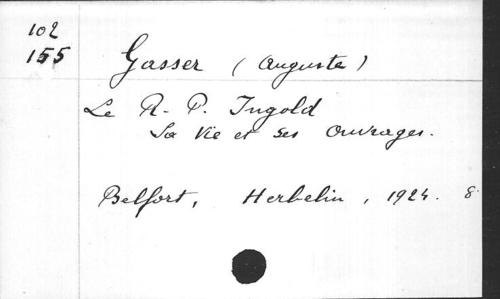 102
155
Gasser (Auguste)
Le R. P. Ingold
Sa Vie et ses Ouvrages.
Belfort, Herbelin, 1924. 8°